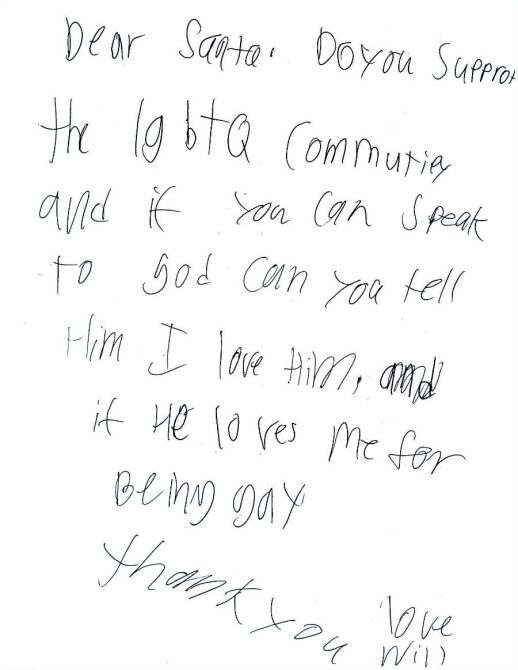 Dear Santa. Do you Supprot
the lgbtQ Commutiey
and if you Can Speak
to god Can you tell
Him I love Him, and
if He loves Me for
Being gay
thank you love
Will